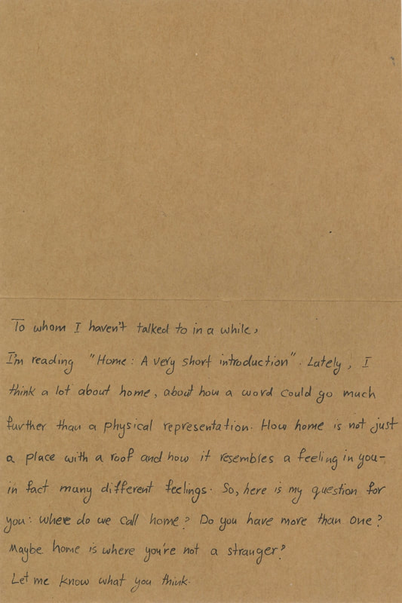 To whom I haven't talked to in a while,
I'm reading "Home: A very short introduction". Lately, I
think a lot about home, about how a word could go much
further than a physical representation. How home is not just
a place with a roof and how it resembles a feeling in you-
in fact many different feelings. So, here is my question for
you: where do we call home? Do you have more than one?
Maybe home is where you're not a stranger?
Let me know what you think.